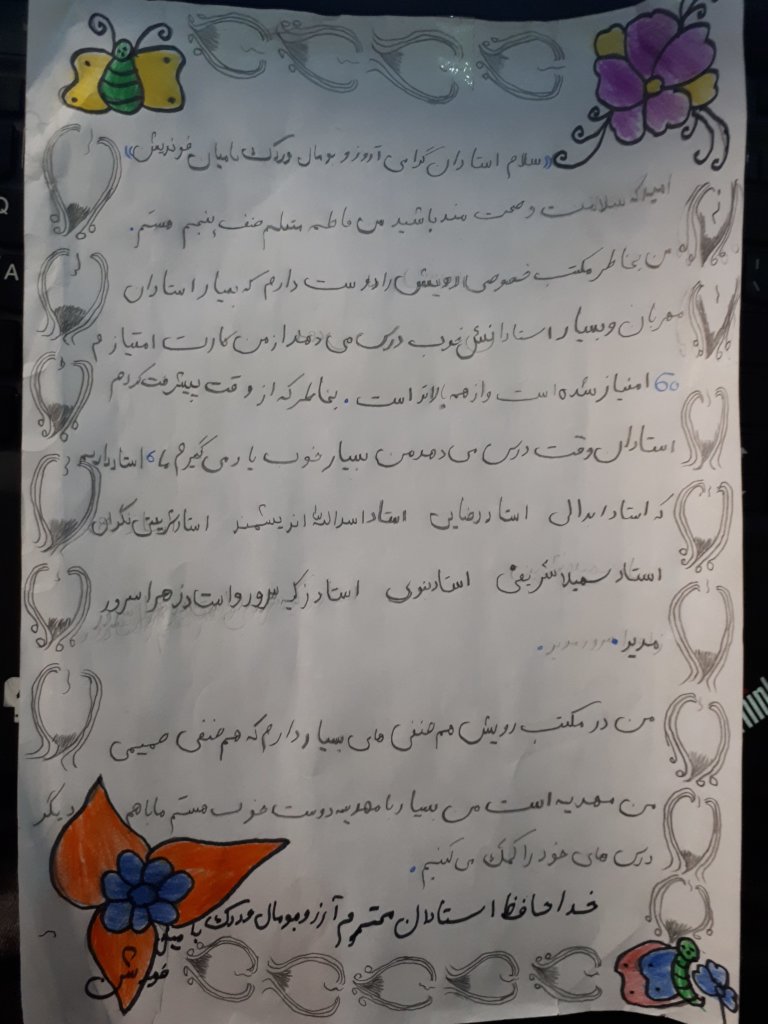 «سلام استادان گرامی آرزو و بومال ودک بامیان خودیش»
امیدکه سلامت و صحت مند باشید من فاطمه متعلم صنف پنجم هستم.
من بخاطر مکتب خصوصی رویش را دوست دارم که بسیار استادان
مهربان و بسیار استادانش خوب درس می دهند از من کارت امتیازم
60 امتیاز شده است و از همه بالاتر است. بخاطر که از وقت پیشرفت کردم
استادان وقت درس می دهد من بسیار خوب یاد می گیرم ما 6 استاد داریم
که استاد ابدالی استاد رضایی استاد اسدالله اندیشمند استاد شریفی نگران
استاد سهیلا شریفی استاد نبوی استاد زکیه سرور و استاد زهرا سرور
مدیر.
من در مکتب رویش هم صنفی های بسیار دارم که هم صنفی صمیمی
من مهدیه است من بسیار با مهدیه دوست خوب هستم ما با هم دیگر
درس های خود را کمک می کنیم.
خدا حافظ استادان محترم آرزو بومال ودک با
خودیش